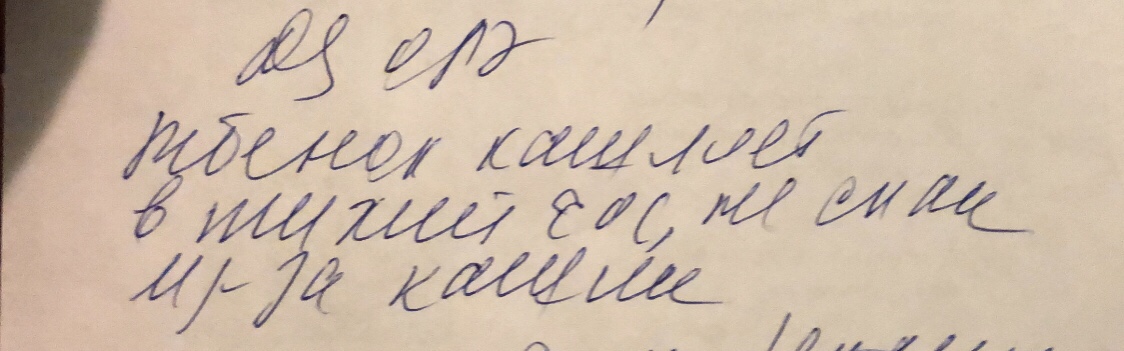 Дз ОРЗ
Ребенок кашляет
в тихий час, не спал
из-за кашля